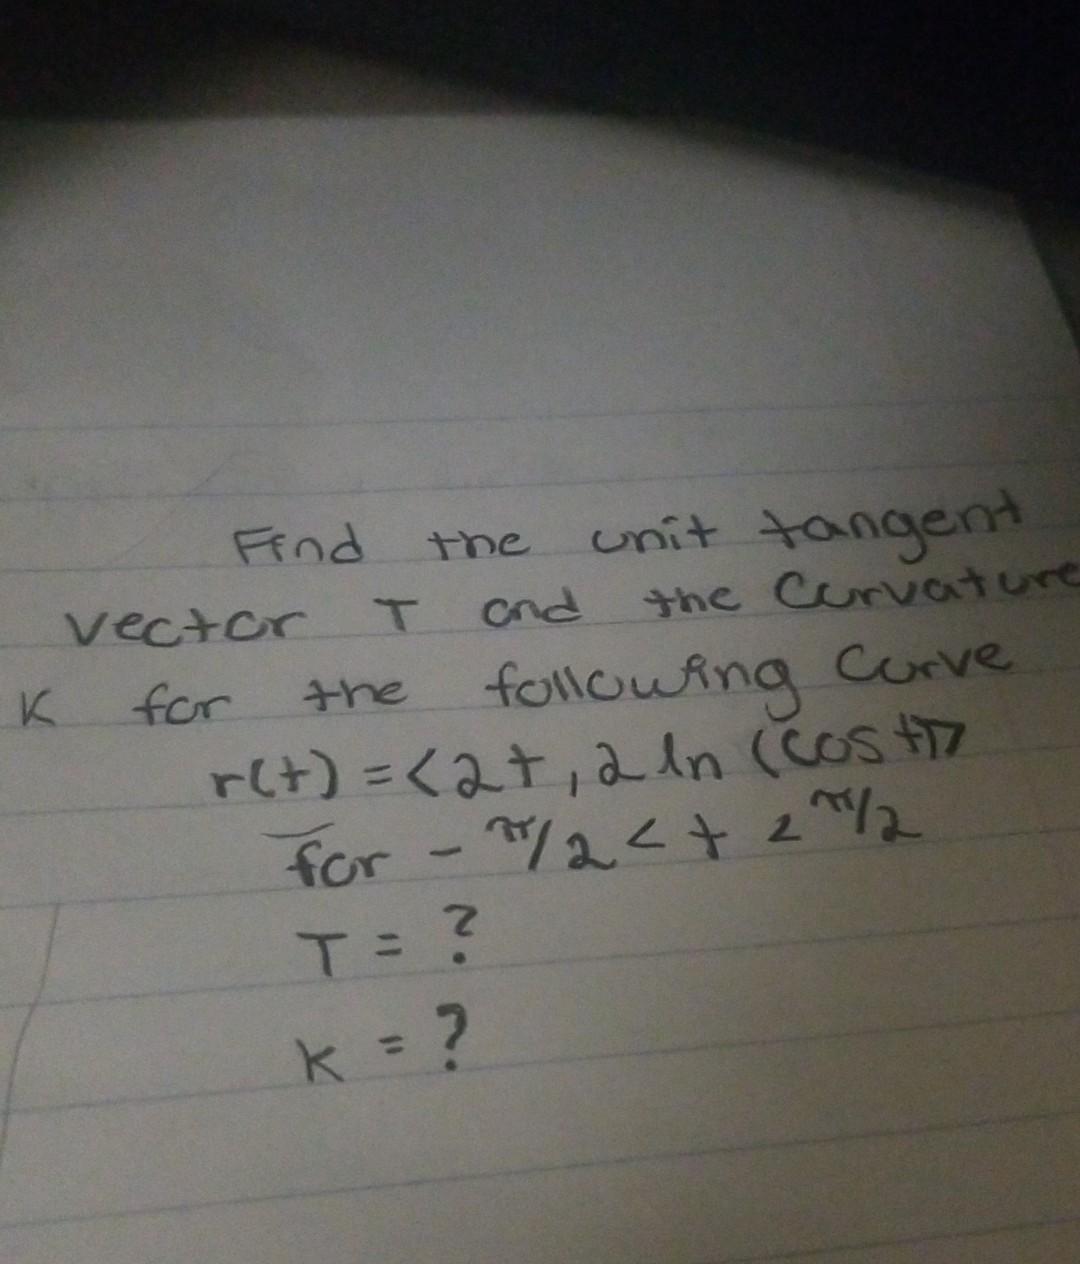 Find the unit tangent
vector T and the Curvature
K for the following Curve
r(t) = <2t, 2 ln (cos t)>
for - π/2 < t < π/2
T = ?
K = ?